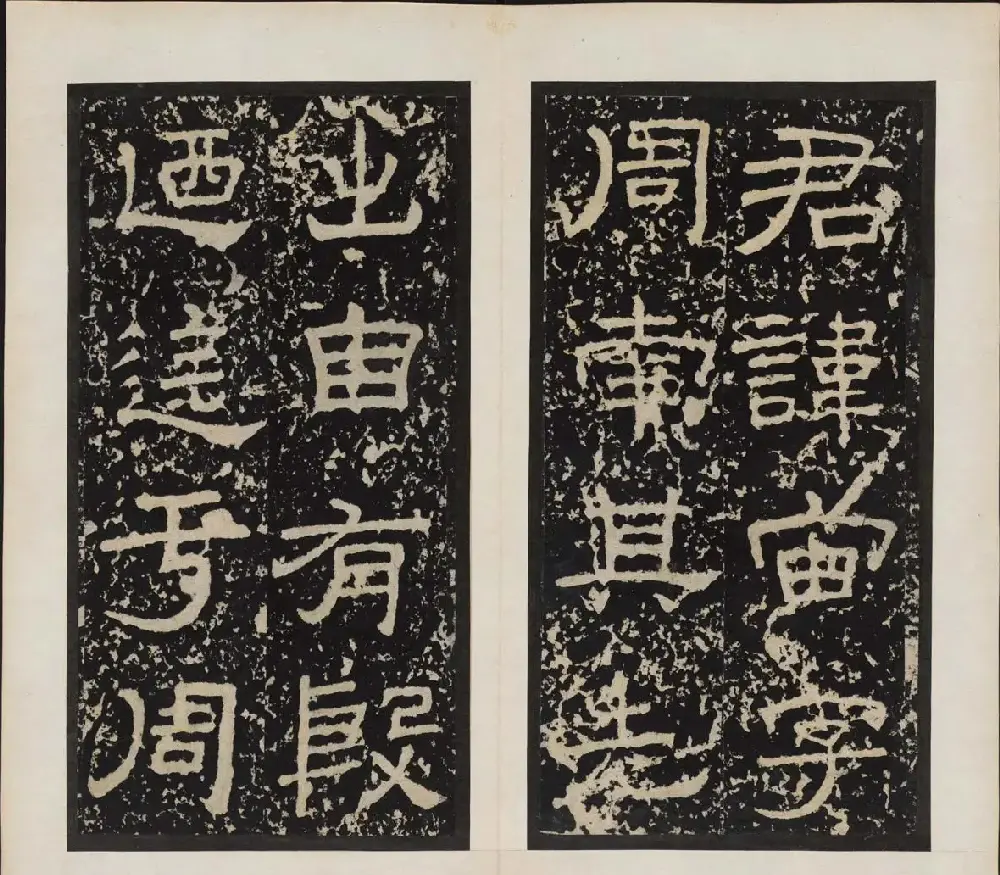 君諱宙字
周南其先
出由有殷
迺遷于周